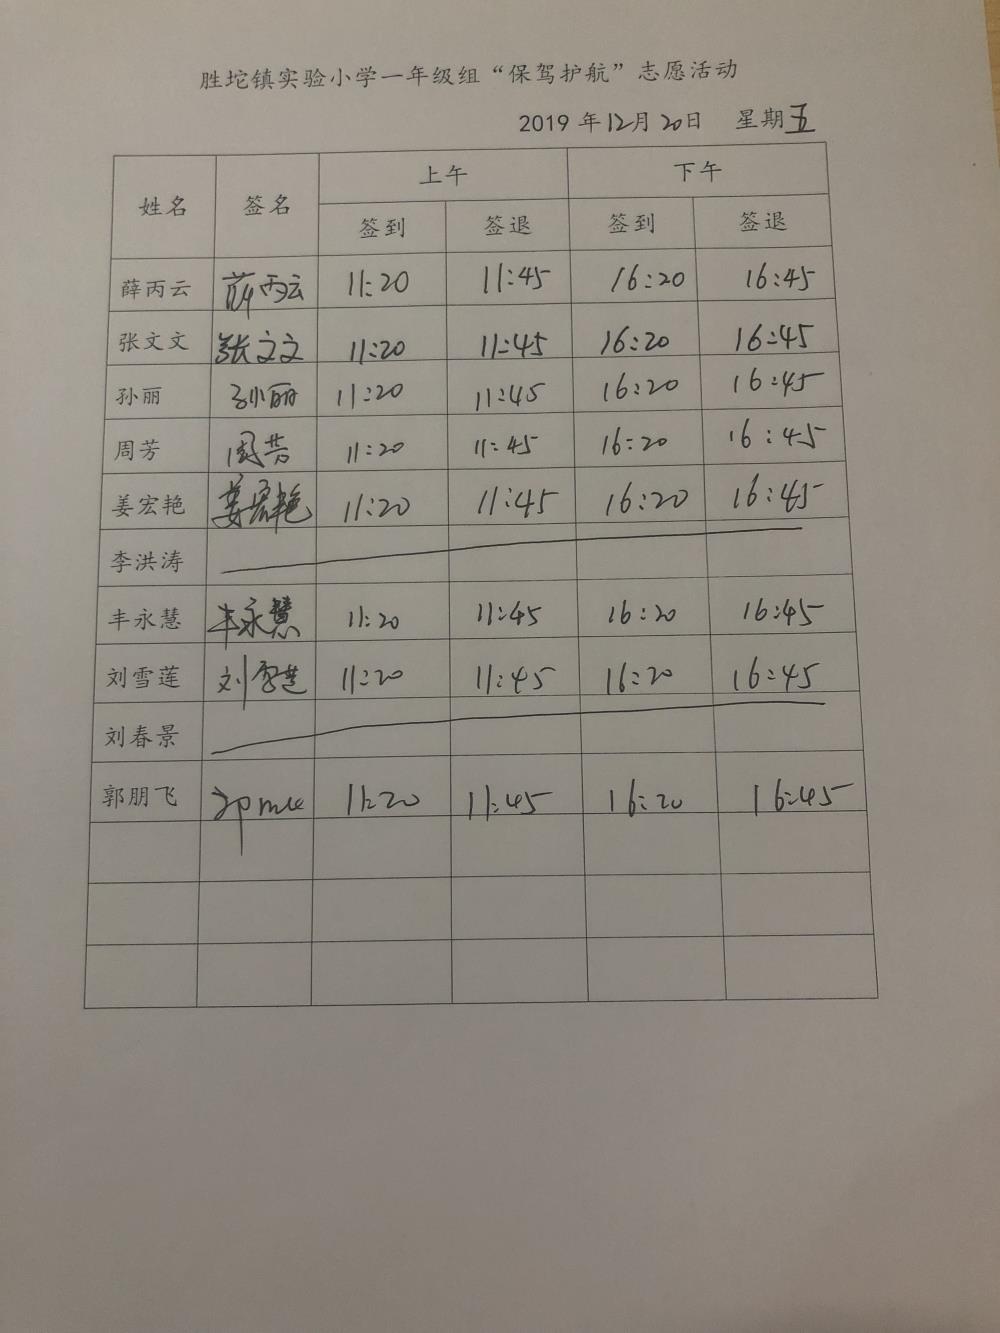 胜坨镇实验小学一年级组“保驾护航”志愿活动
2019 年12月20日 星期五
姓名 签名 上午 下午
签到 签退 签到 签退
薛丙云 薛丙云 11:20 11:45 16:20 16:45
张文文 张文文 11:20 11:45 16:20 16:45
孙丽 孙丽 11:20 11:45 16:20 16:45
周芳 周芳 11:20 11:45 16:20 16:45
姜宏艳 姜宏艳 11:20 11:45 16:20 16:45
李洪涛
丰永慧 丰永慧 11:20 11:45 16:20 16:45
刘雪莲 刘雪莲 11:20 11:45 16:20 16:45
刘春景
郭朋飞 11:20 11:45 16:20 16:45